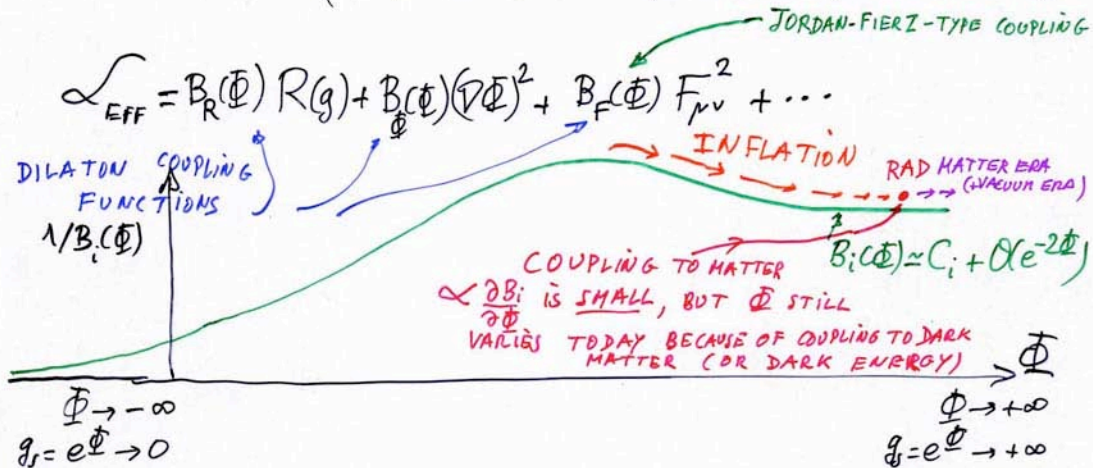 JORDAN-FIERZ-TYPE COUPLING
ℒ_EFF = B_R(Φ) R(g) + B_Φ(Φ)(∇Φ)² + B_F(Φ) F_μν² + ...
INFLATION
DILATON COUPLING
FUNCTIONS
RAD MATTER ERA
(+VACUUM ERA)
1/B_i(Φ)
B_i(Φ) ≃ C_i + O(e^-2Φ)
COUPLING TO MATTER
∝ ∂B_i/∂Φ is SMALL, BUT Φ STILL
VARIES TODAY BECAUSE OF COUPLING TO DARK
MATTER (OR DARK ENERGY)
Φ
Φ → -∞
g_s = e^Φ → 0
Φ → +∞
g_s = e^Φ → +∞